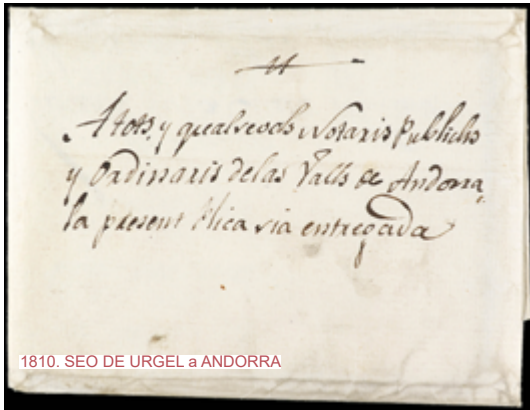 A tots, y qualsevols Notaris Publichs
y Ordinaris de las Valls de Andorra
la present plica sia entregada
1810. SEO DE URGEL a ANDORRA